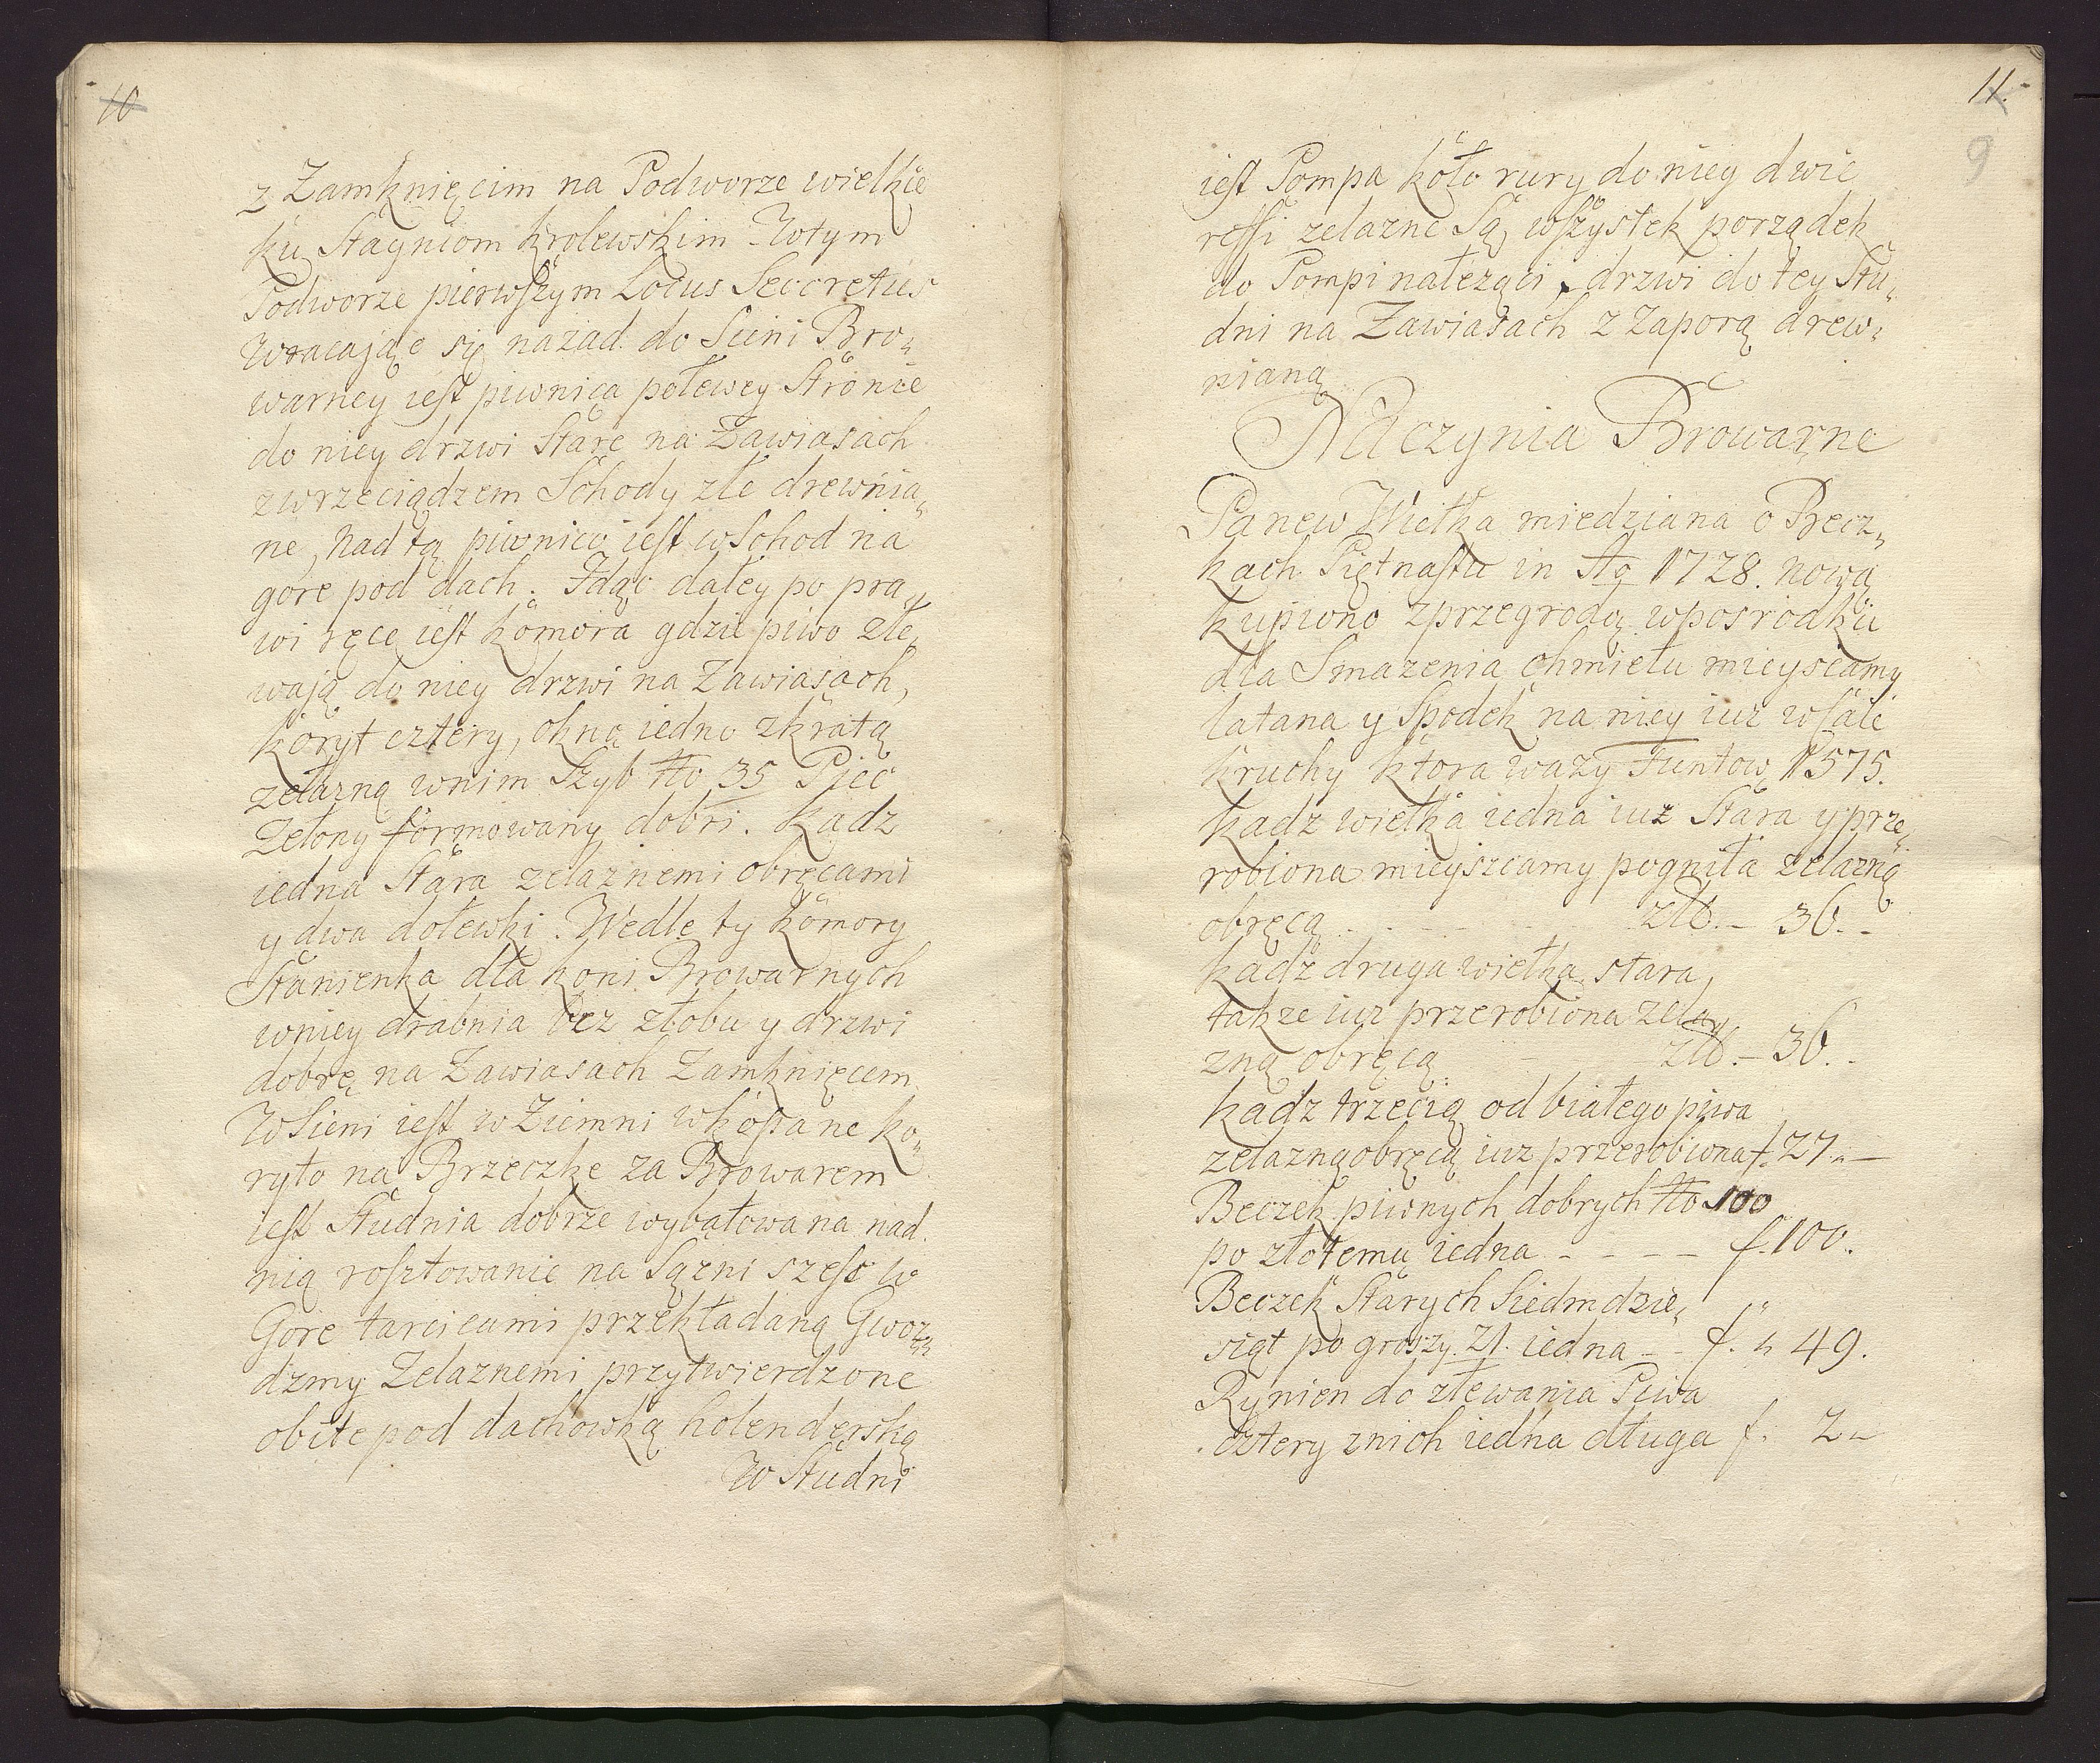 10
z Zamknięcim na Podworze wielkie
ku Stayniom krolewskim. Wtym
Podworze pierwszym Locus Seccretus
Wracające się nazad do Sieni Bro„
warney iest piwnica polewey Stronie
do niey drzwi Stare na Zawiasach
zwrzeciądzem Schody złe drewnia„
ne, Nad tą piwnico iest wschod na
gore pod dach. Idąc daley po pra„
wi ręce iest komora gdzie piwo zle„
wają do niey drzwi na Zawiasach,
koryt cztery, okno iedno zkratą
zelazną wnim Szyb No 35 Piec
Zelony formowany dobri. Kadz
iedna Stara zelaznemi obręcami
y dwa dolewki. Wedle ty komory
Stanienka dla koni Browarnych
wniey drabnia bez złobu y drzwi
dobrę na Zawiasach Zamknięcem
W Sieni iest w Ziemni wkopane ko„
ryto na Brzeczke za Browarem
iest Studnia dobrze wybałowana nad
nią rosztowanie na Sązni szesc w
Gore tarcicami przekładaną Gwoz„
dzmy Zelaznemi przytwierdzone
obite pod dachowką holenderską
W Studni
11.
9
iest Pompa koło rury do niey dwie
reffi zelazne Są, wszystek porządek
do Pompi naleząci, drzwi do tey Stu„
dni na Zawiasach z Zaporą drew„
nianą
Naczynia Browarne
Panew Wielka miedziana o Becz„
kach Piętnastu in Ao 1728. nową
kupiono zprzegrodą wposrodku
dla Smazenia chmielu mieyscamy
latana y Spodek na niey iuz wsale
kruchy ktora wazy Funtow 1575.
Kadz wielka iedna iuz Stara y prze„
robiona mieyszcamy pogniła zelazną
obręcą . . . - - - - . . złt. - 36. -
Kadz druga wielka stara,
takze iuz przerobiona zela„
zną obręcą - złt. - 36. -
Kadz trzecią od białego piwa
zelazną obręcą iuz przerobiona f. 27. „ —
Beczek piwnych dobrych No 100
po złotemu iedna - - - - f. 100.
Beczek Starych Siedmdzie„
siąt po groszy. 21. iedna - - f. „ 49.
Rynien do zlewania Piwa
cztery znich iedna długa f. 2 „